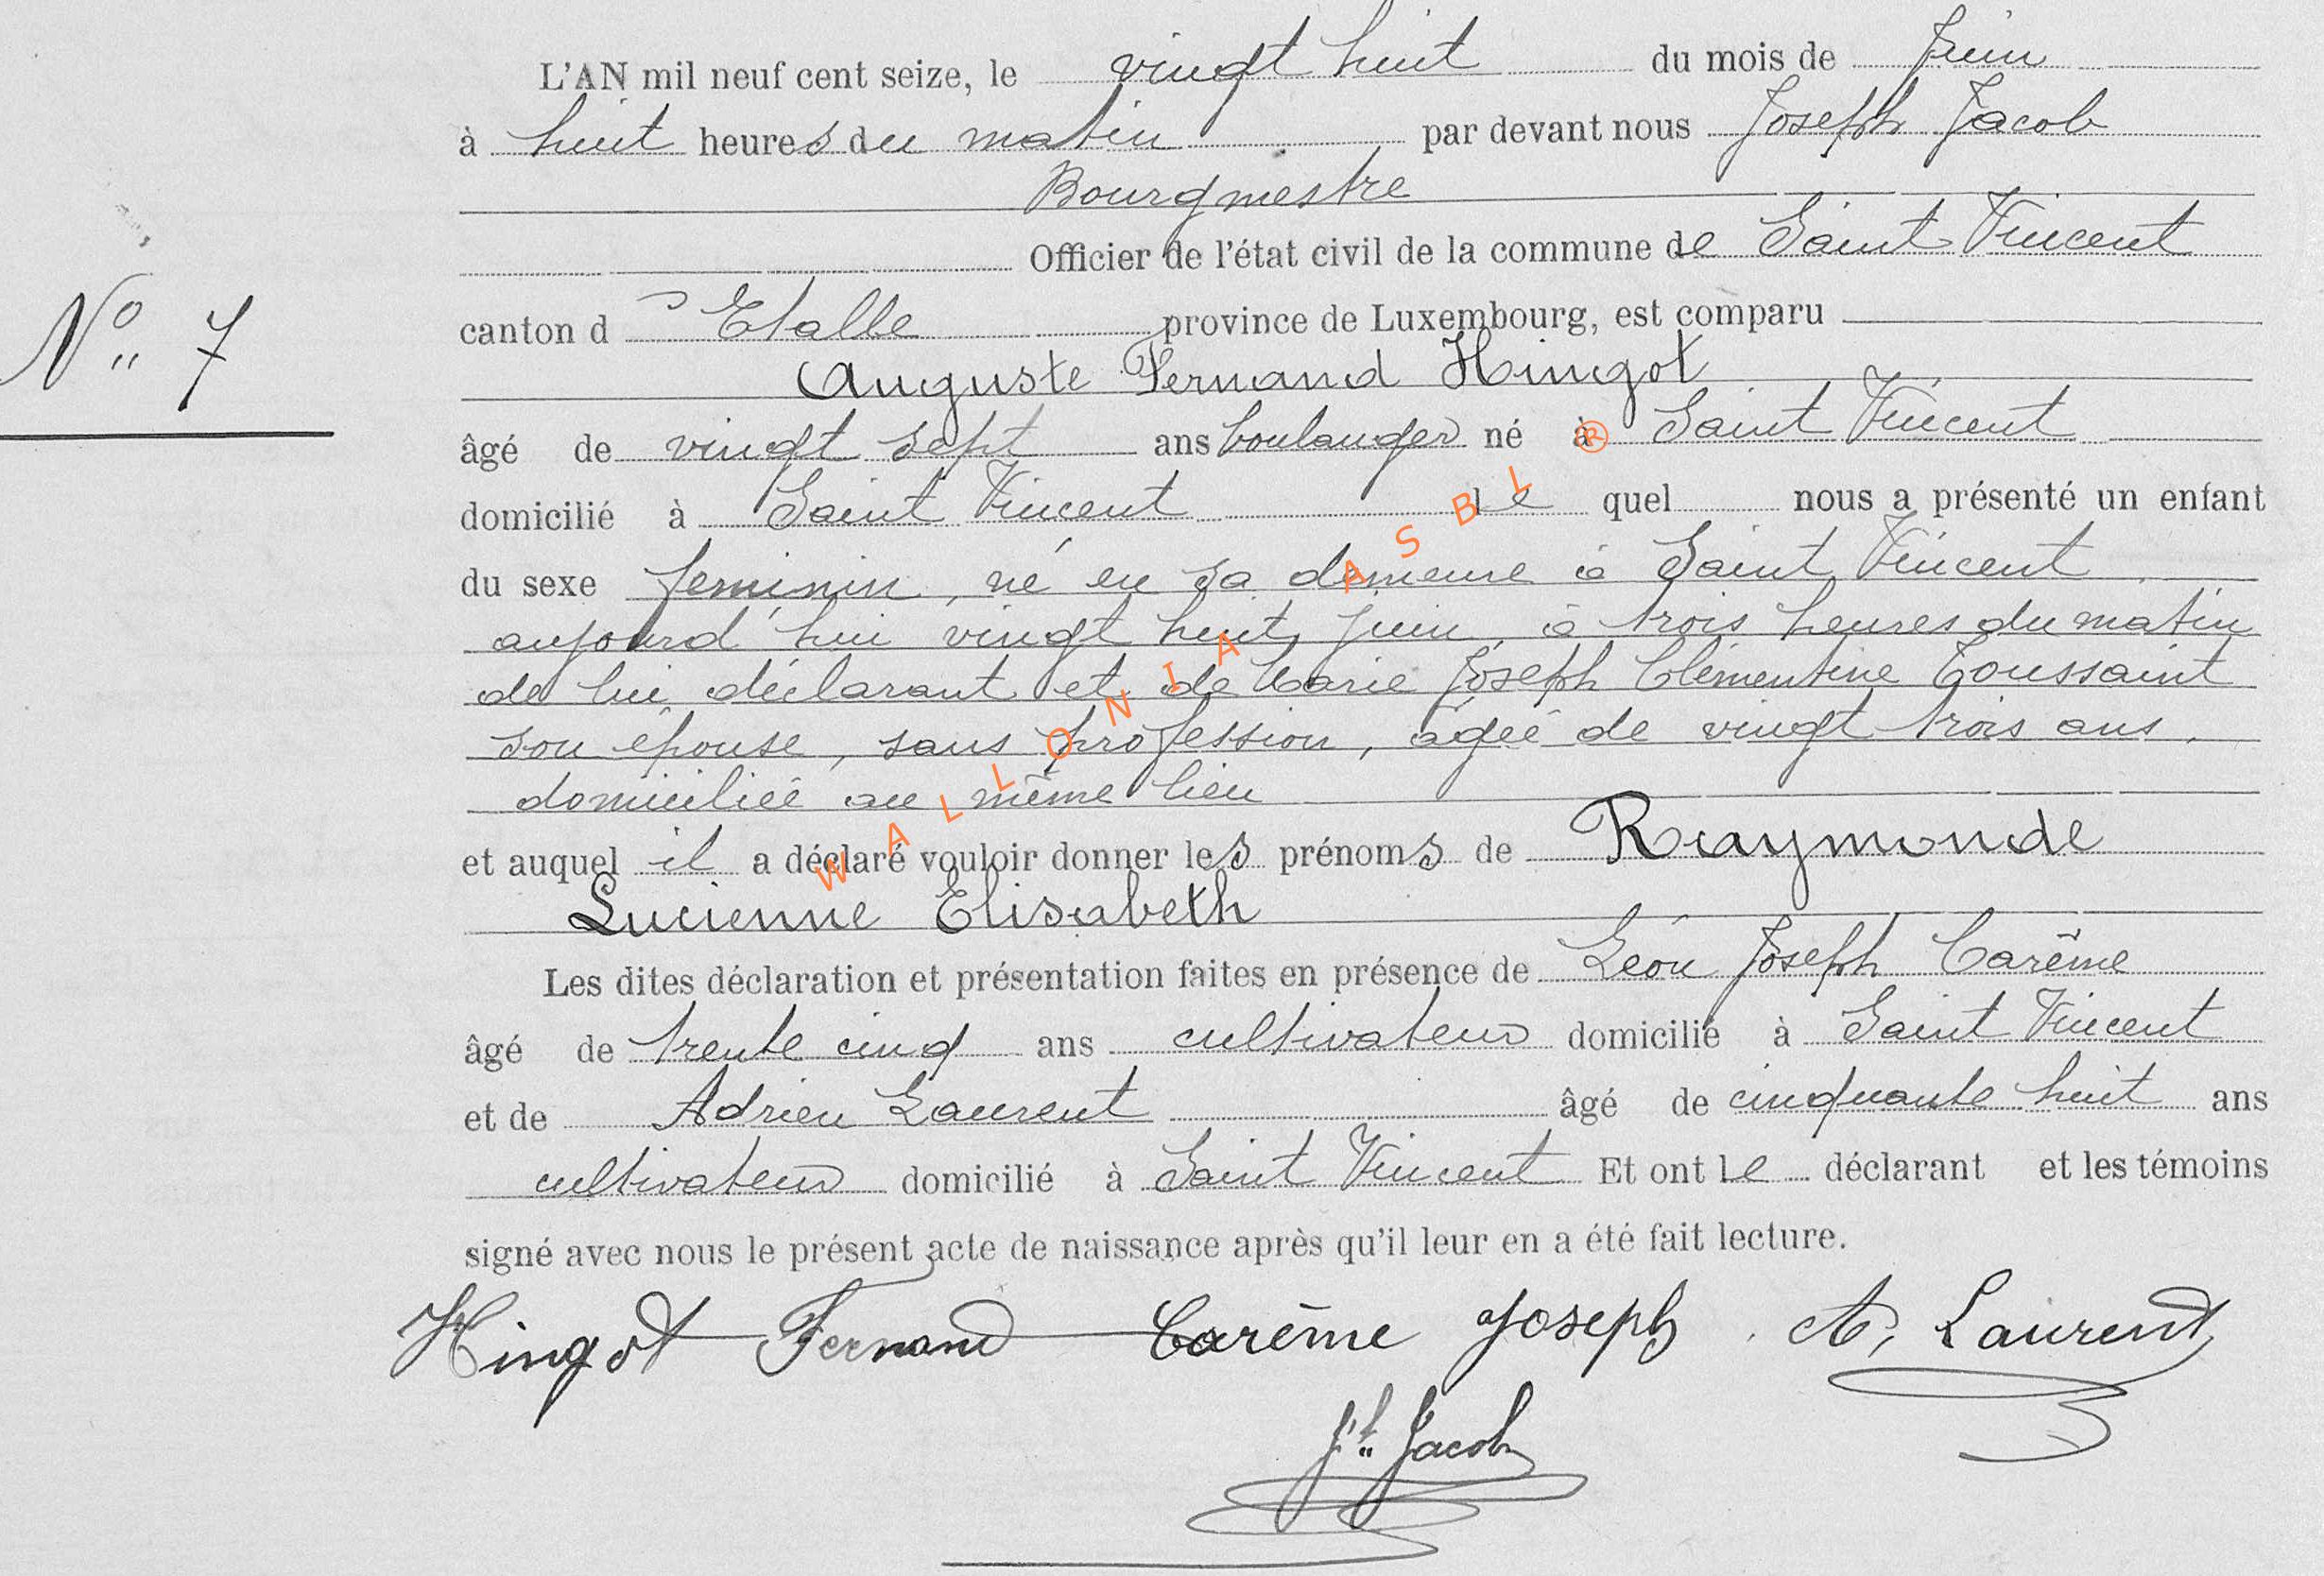 L'AN mil neuf cent seize, le vingt huit du mois de Juin
à huit heures du matin par devant nous Joseph Jacob
Bourgmestre
Officier de l'état civil de la commune de Saint Vincent
N° 7
canton d'Etalle province de Luxembourg, est comparu
Auguste Fernand Hingot
âgé de vingt sept ans boulanger né à Saint Vincent
domicilié à Saint Vincent le quel nous a présenté un enfant
du sexe feminin, né en sa demeure à Saint Vincent
aujourd'hui vingt huit juin, à trois heures du matin
de lui déclarant et de Marie Joseph Clémentine Toussaint
son épouse, sans profession, âgée de vingt trois ans,
domiciliée au même lieu
et auquel il a déclaré vouloir donner les prénoms de Raymonde
Lucienne Elisabeth
Les dites déclaration et présentation faites en présence de Léon Joseph Carême
âgé de trente cinq ans cultivateur domicilié à Saint Vincent
et de Adrien Laurent âgé de cinquante huit ans
cultivateur domicilié à Saint Vincent Et ont le déclarant et les témoins
signé avec nous le présent acte de naissance après qu'il leur en a été fait lecture.
Hingot Fernand Carême Joseph A. Laurent
Jh Jacob
WALLONIA ASBL ®